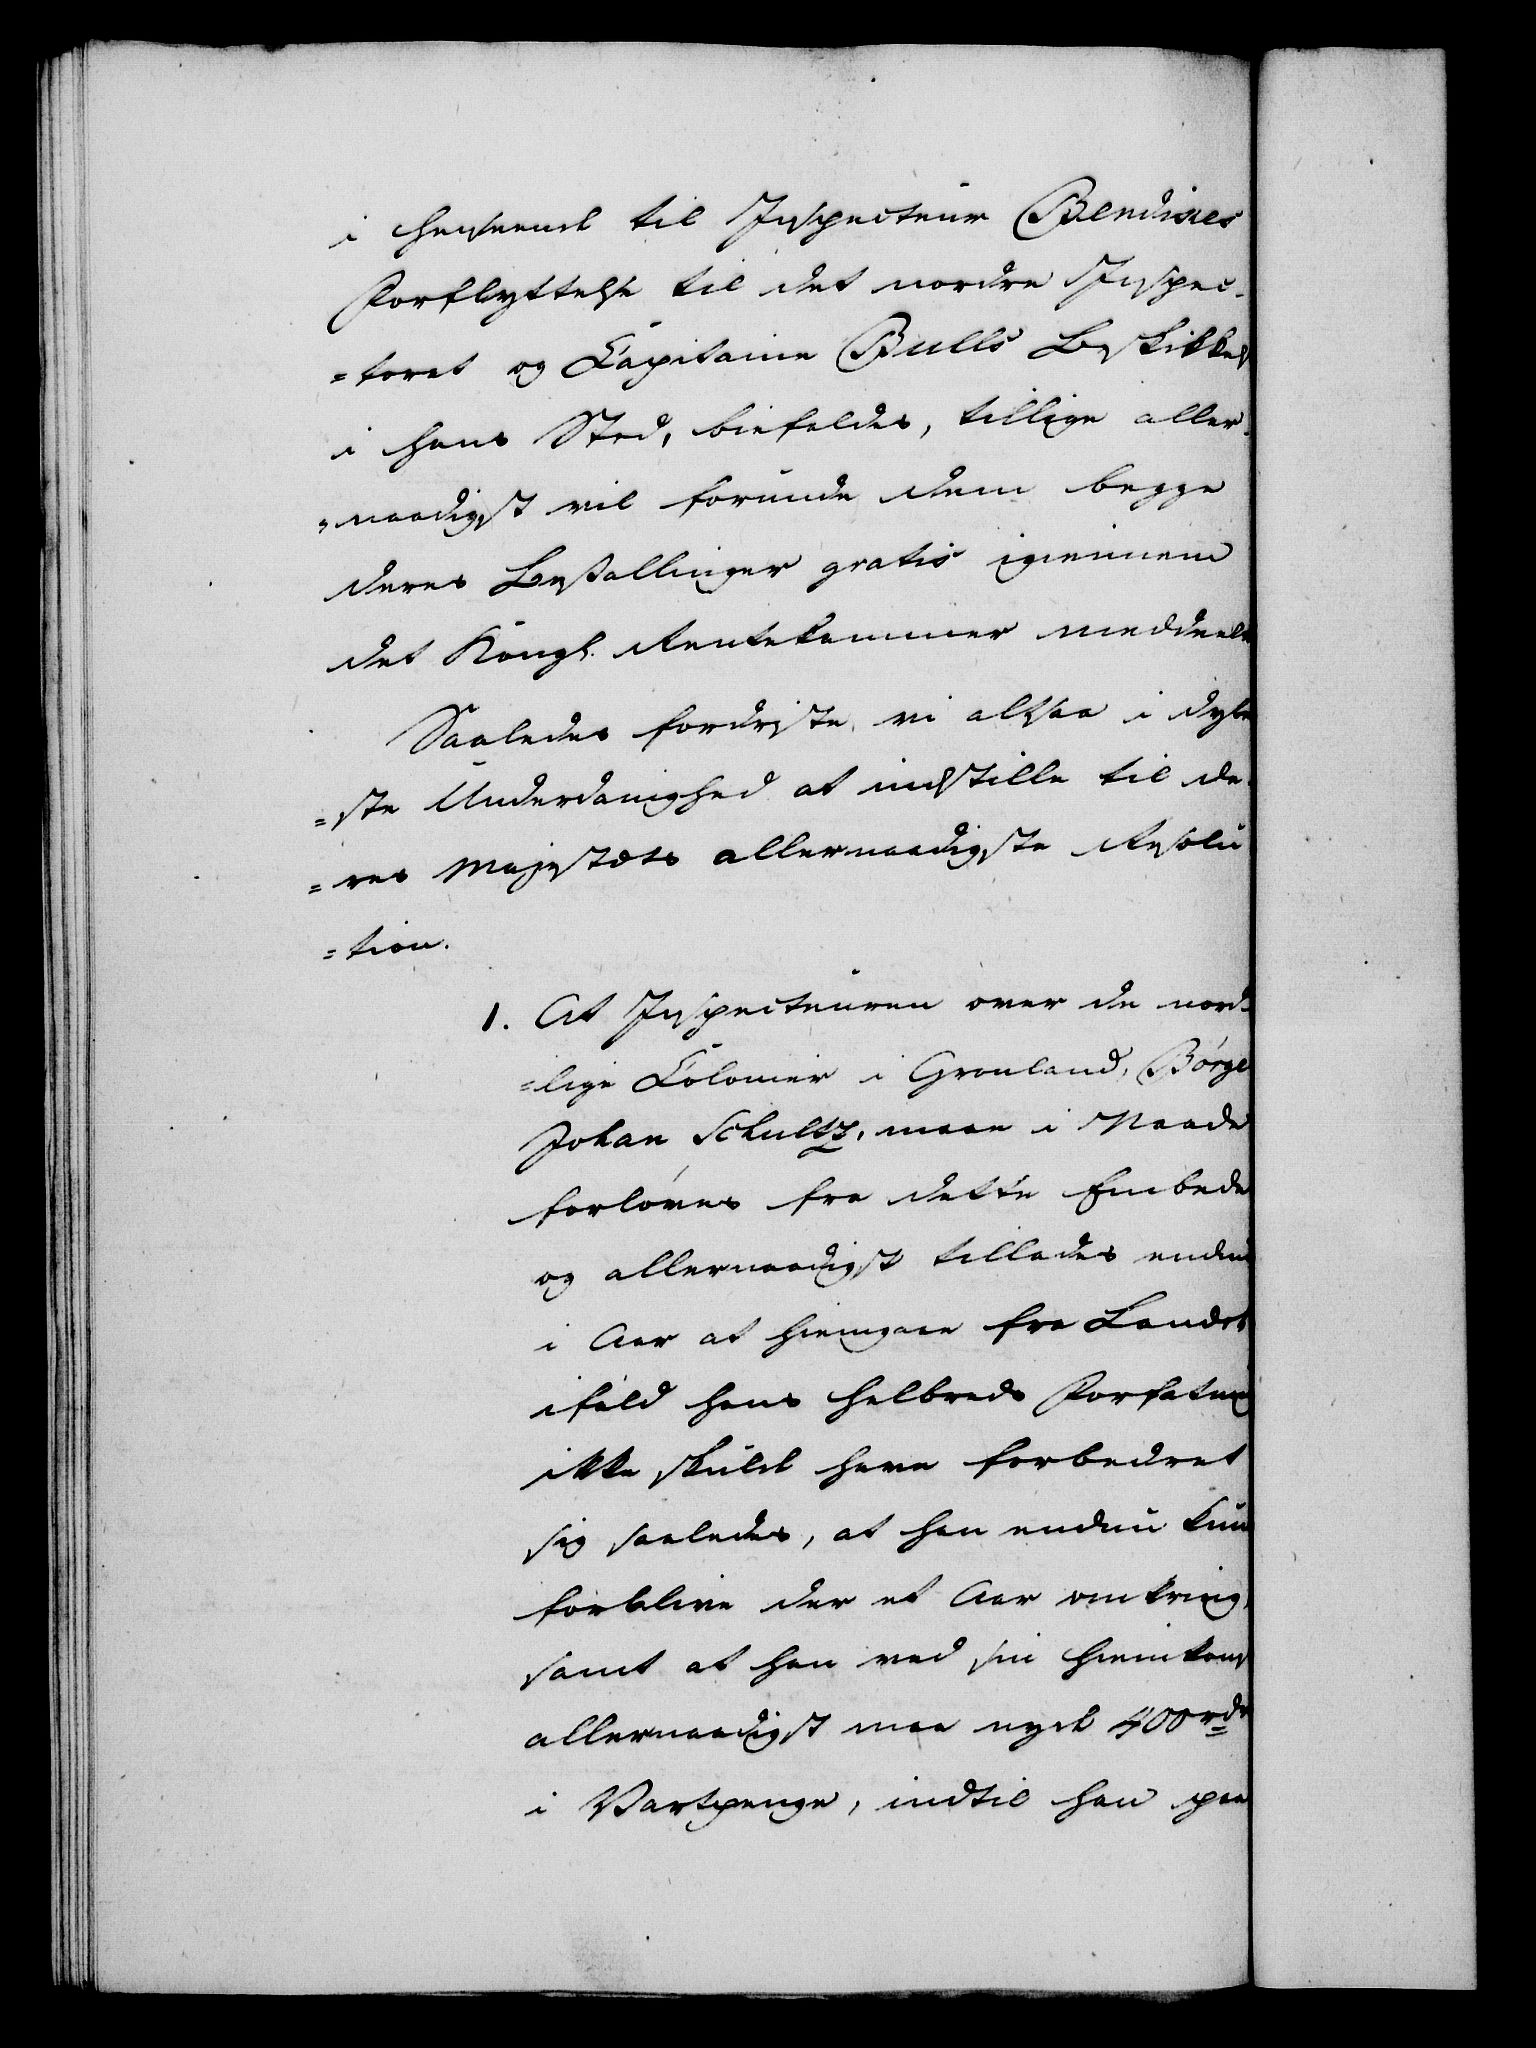 i Henseende til Inspecteur Bendixes
Forflyttelse til det nordre Inspec-
=torat og Capitaine Bulls Beskikkels
i hans Sted, biefaldes, tillige aller-
=naadigst vil forunde dem begge
deres Bestallinger gratis igiennem
det Kongl. Rentekammer meddeelte
Saaledes fordriste vi altsaa i dybe
=ste Underdanighed at indstille til De-
=res Majestæts allernaadigste Resolu
=tion.
1. At Inspecteuren over de nord-
=lige Colonier i Grønland, Børge
Johan Schultz, maae i Naade
forløves fra dette Embede
og allernaadigst tillades endnu
i Aar at hiemgaae fra Landet
ifald hans Helbreds Forfatning
ikke skulde have forbedret
sig saaledes, at han endnu kun
forblive der et Aar omkring,
samt at han ved sin Hiemkomst
allernaadigst maa nyde 400 rdr
i Vartpenge, indtil han paa